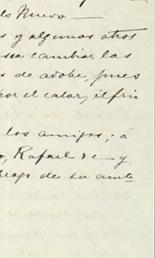 do Nuevo —
s y algunos otros
sea cambiar las
s de adobe, pues
por el calor, el fri
los amigos; á
o, Rafael &c — y
de su amte